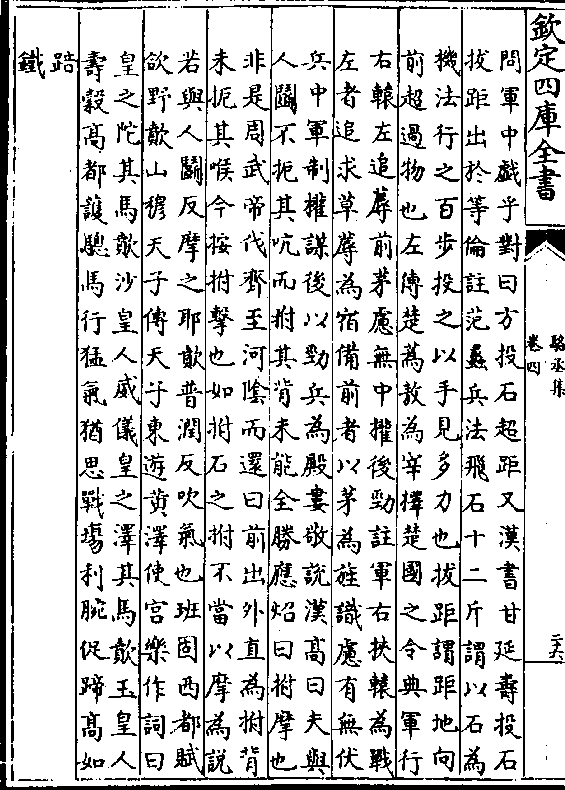 欽定四庫全書
駱丞集
卷四
二六
問軍中戲乎對曰方投石超距又漢書甘延壽投石
拔距出於等倫註范蠡兵法飛石十二斤謂以石為
機法行之百步投之以手見多力也拔距謂距地向
前超過物也左傳楚蒍敖為宰擇楚國之令典軍行
右轅左追蓐前茅慮無中權後勁註軍右挾轅為戰
左者追求草蓐為宿備前者以茅為旌識慮有無伏
兵中軍制權謀後以勁兵為殿婁敬說漢高曰夫與
人鬬不扼其吭而拊其背未能全勝應炤曰拊摩也
非是周武帝伐齊至河陰而還曰前出外直為拊背
未扼其喉今按拊擊也如拊石之拊不當以摩為說
若與人鬬反摩之耶歕普潤反吹氣也班固西都賦
欱野歕山穆天子傳天子東遊黄澤使宫樂作詞曰
皇之陀其馬歕沙皇人威儀皇之澤其馬歕玉皇人
壽穀高都護驄馬行猛氣猶思戰塲利腕促蹄高如
踣
鐵